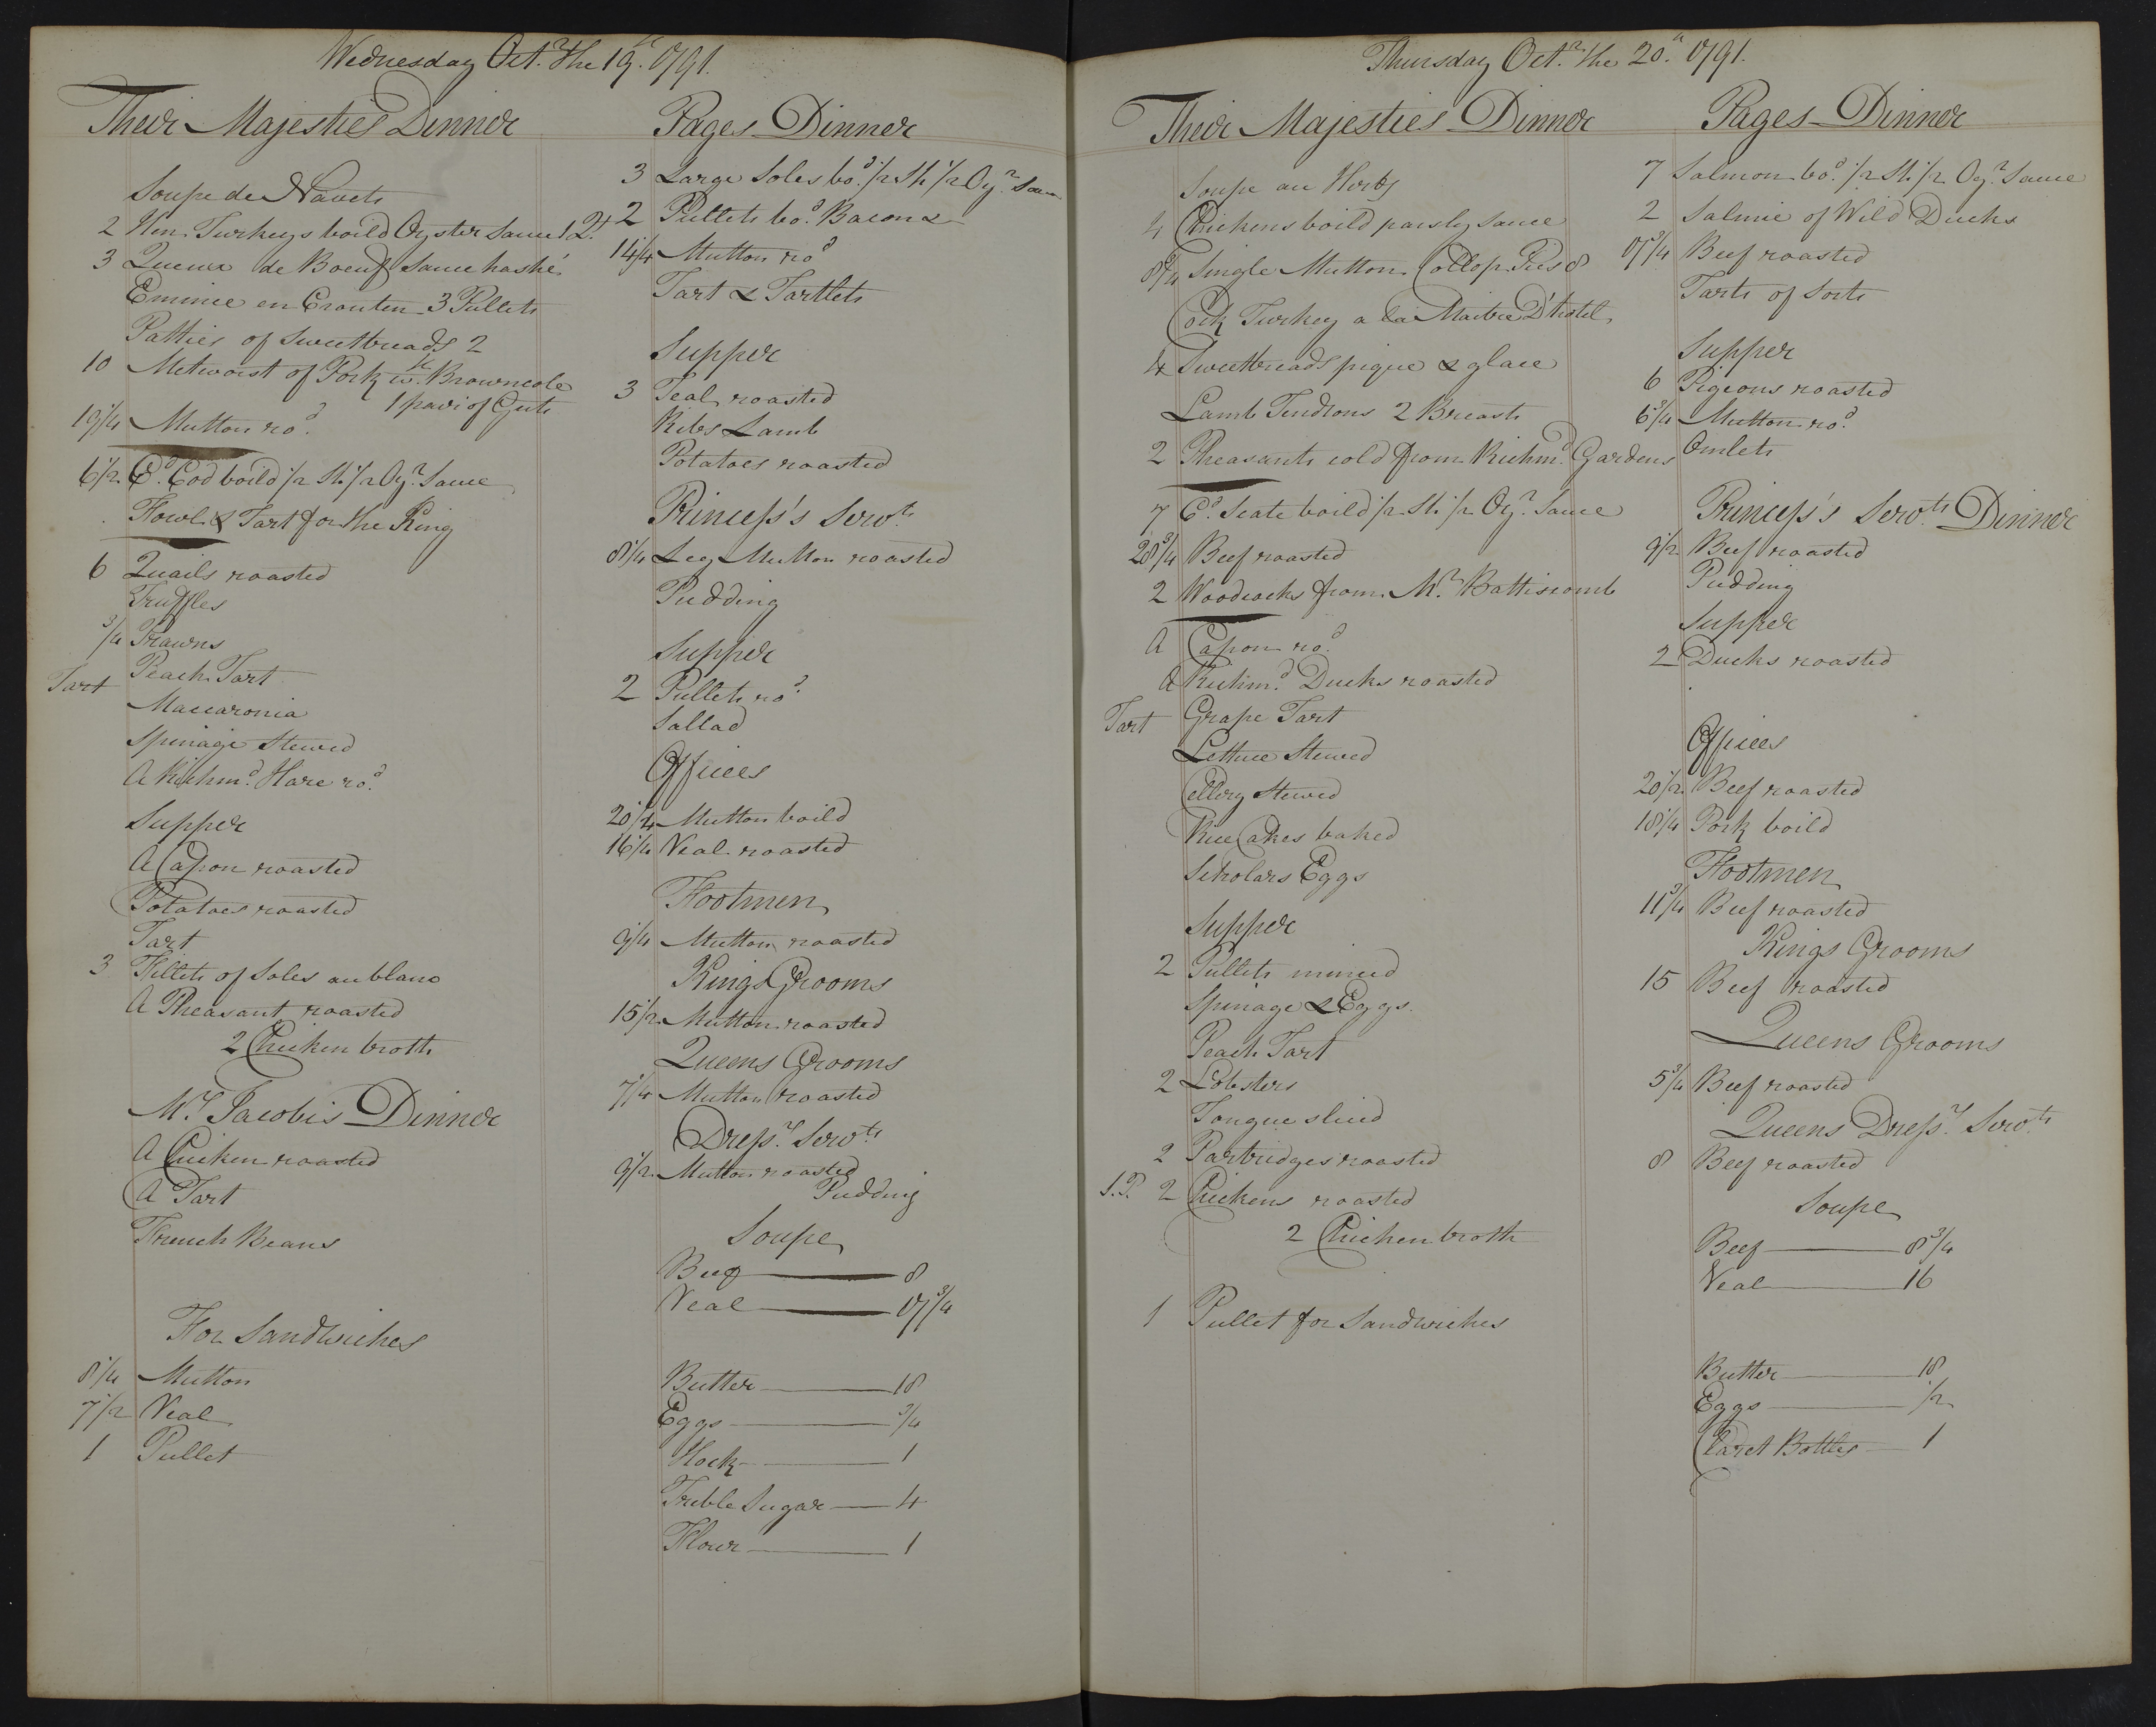 Wednesday Oct.r the 19.th 1791.
Their Majesties Dinner
Soupe de Navets
2 Hen Turkeys boild Oyster Sauce 1 2.t
3 Queux de Boeuf Sauce hashé
Emincé en Crouten 3 Pullets
Patties of Sweetbreads 2
10 Metworst of Pork w.th Browncole
1 pavi of Guts
19 1/4 Mutton ro.d
6 1/2 C.d Cod boild 1/2 Sh 1/2 Oy.r Sauce
Fowl & Tart for the King
6 Quails roasted
Truffles
3/4 Prawns
Tart Peach Tart
Maccaronia
Spinage Stewed
A Richm.d Hare ro.d
Supper
A Capon roasted
Potatoes roasted
Tart
3 Fillets of Soles au blanc
A Pheasant roasted
2 Chicken broth
M.rs Jacobi's Dinner
A Chicken roasted
A Tart
French Beans
For Sandwiches
8 1/4 Mutton
7 1/2 Veal
1 Pullet
Pages Dinner
3 Large Soles bo.d 1/2 Sh 1/2 Oy.r Sau
2 Pullets bo.d Bacon &
14 1/4 Mutton ro.d
Tart & Tartlets
Supper
3 Teal roasted
Ribs Lamb
Potatoes roasted
Princess's Serv.ts
8 1/4 Leg Mutton roasted
Pudding
Supper
2 Pullets ro.d
Sallad
Offices
20 1/4 Mutton boild
16 1/4 Veal roasted
Footmen
9 1/4 Mutton roasted
Kings Grooms
15 1/2 Mutton roasted
Queens Grooms
7 1/4 Mutton roasted
Dress.rs Serv.ts
9 1/2 Mutton roasted
Pudding
Soupe
Beef 8
Veal 17 3/4
Butter 18
Eggs 3/4
Hock 1
Treble Sugar 4
Flour 1
Thursday Oct.r the 20.th 1791.
Their Majesties Dinner
Soupe au Herbs
4 Chickens boild parsly Sauce
8 3/4 Single Mutton Collop Pies 8
Cock Turkey a la Maitre D'hotel
4 Sweetbreads pique & glace
Lamb Tendrons 2 Breasts
2 Pheasants cold from Richm.d Gardens
7 C.d Scate boild 1/2 Sh 1/2 Oy.r Sauce
28 3/4 Beef roasted
2 Woodcocks from M.r Battiscomb
A Capon ro.d
A Richm.d Ducks roasted
Tart Grape Tart
Lettuce Stewed
Cellery Stewed
Rice Cakes baked
Scholars Eggs
Supper
2 Pullets minced
Spinage & Eggs.
Peach Tart
2 Lobsters
Tongue sliced
2 Partridges roasted
S.P. 2 Chickens roasted
2 Chicken broth
1 Pullet for Sandwiches
Pages Dinner
7 Salmon bo.d 1/2 Sh 1/2 Oy.r Sauce
2 Salmie of Wild Ducks
17 3/4 Beef roasted
Tarts of Sorts
Supper
6 Pigeons roasted
6 3/4 Mutton ro.d
Omlets
Princess's Serv.ts Dinner
9 1/2 Beef roasted
Pudding
Supper
2 Ducks roasted
Offices
20 1/2 Beef roasted
18 1/4 Pork boild
Footmen
11 3/4 Beef roasted
Kings Grooms
15 Beef roasted
Queens Grooms
5 3/4 Beef roasted
Queens Dress.rs Serv.ts
8 Beef roasted
Soupe
Beef 8 3/4
Veal 16
Butter 18
Eggs 1/2
Claret Bottles 1